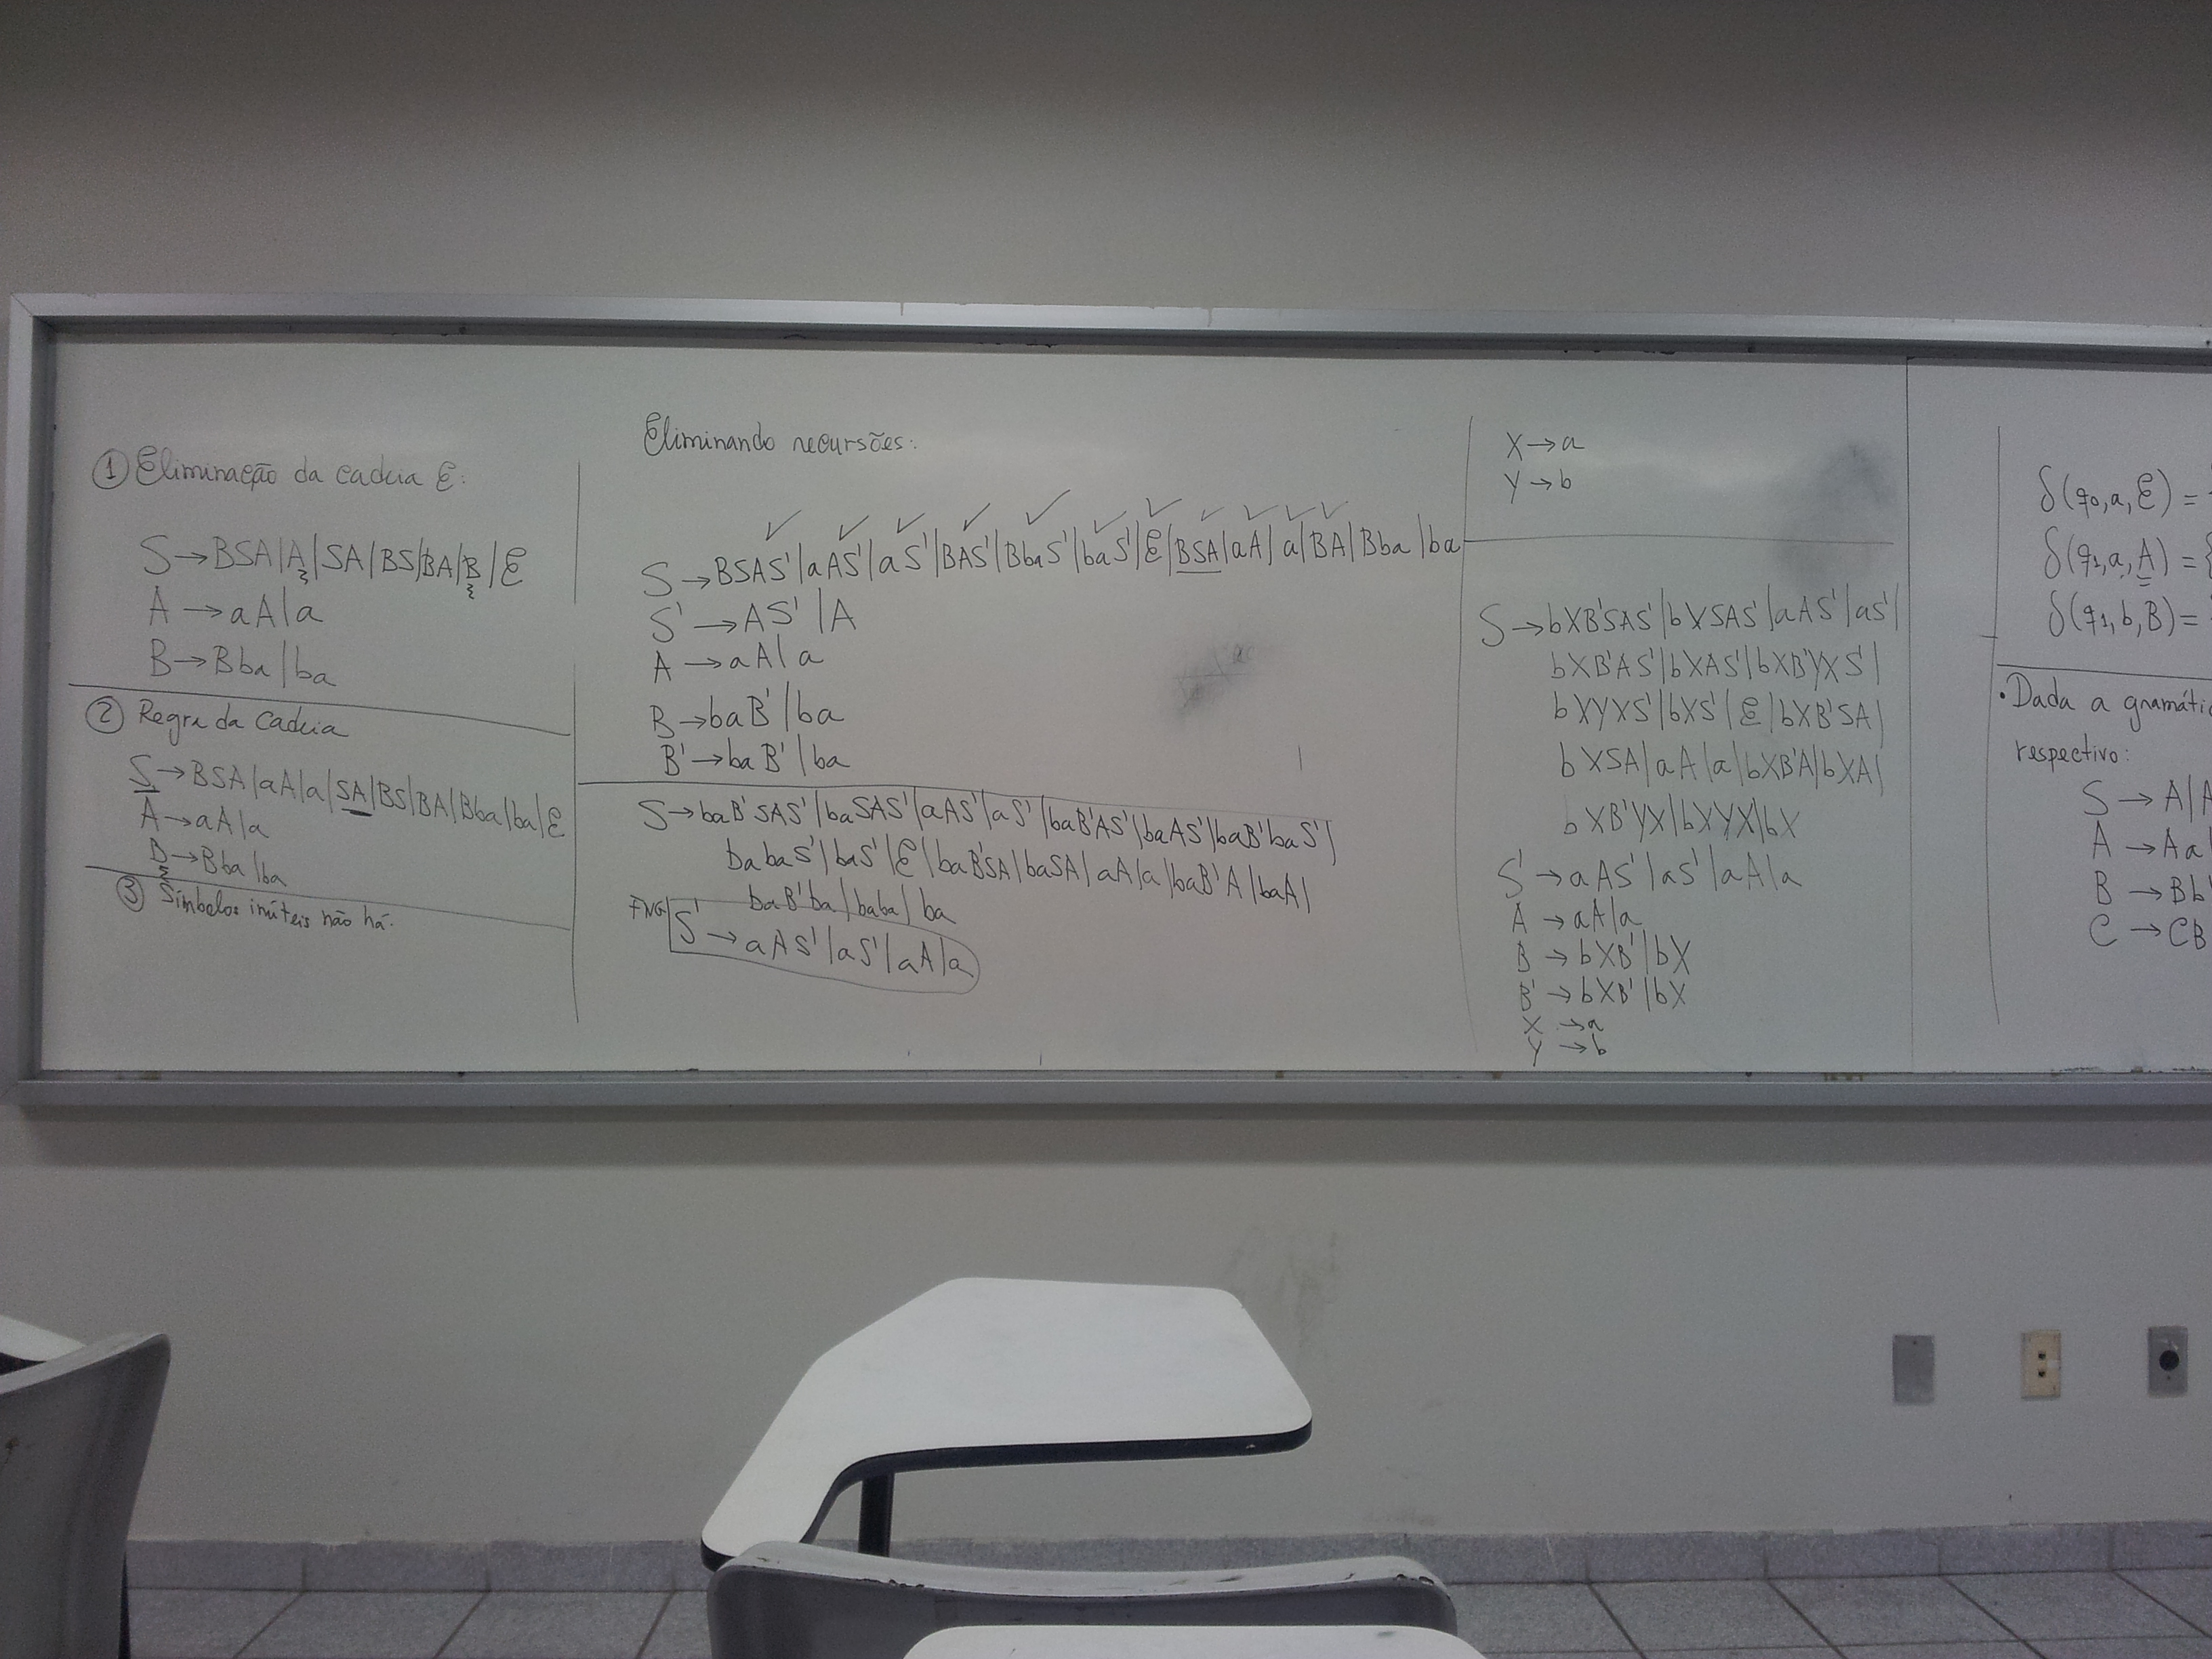 ① Eliminação da cadeia ε:
S → BSA|A|SA|BS|BA|B|ε
A → aA|a
B → Bba|ba
② Regra da Cadeia
S → BSA|aA|a|SA|BS|BA|Bba|ba|ε
A → aA|a
B → Bba|ba
③ Símbolos inúteis não há.
Eliminando recursões:
S → BSAS'|aAS'|aS'|BAS'|BbaS'|baS'|ε|BSA|aA|a|BA|Bba|ba
S' → AS'|A
A → aA|a
B → baB'|ba
B' → baB'|ba
S → baB'SAS'|baSAS'|aAS'|aS'|baB'AS'|baAS'|baB'baS'|
babaS'|baS'|ε|baB'SA|baSA|aA|a|baB'A|baA|
baB'ba|baba|ba
FNG S' → aAS'|aS'|aA|a
X → a
Y → b
S → bXB'SAS'|bXSAS'|aAS'|aS'|
bXB'AS'|bXAS'|bXB'YXS'|
bXYXS'|bXS'|ε|bXB'SA|
bXSA|aA|a|bXB'A|bXA|
bXB'YX|bXYX|bX
S' → aAS'|aS'|aA|a
A → aA|a
B → bXB'|bX
B' → bXB'|bX
X → a
Y → b
δ(q0,a,ε) =
δ(q1,a,A) = {
δ(q1,b,B) =
• Dada a gramátic
respectivo:
S → A|A
A → Aa|
B → Bb
C → CB